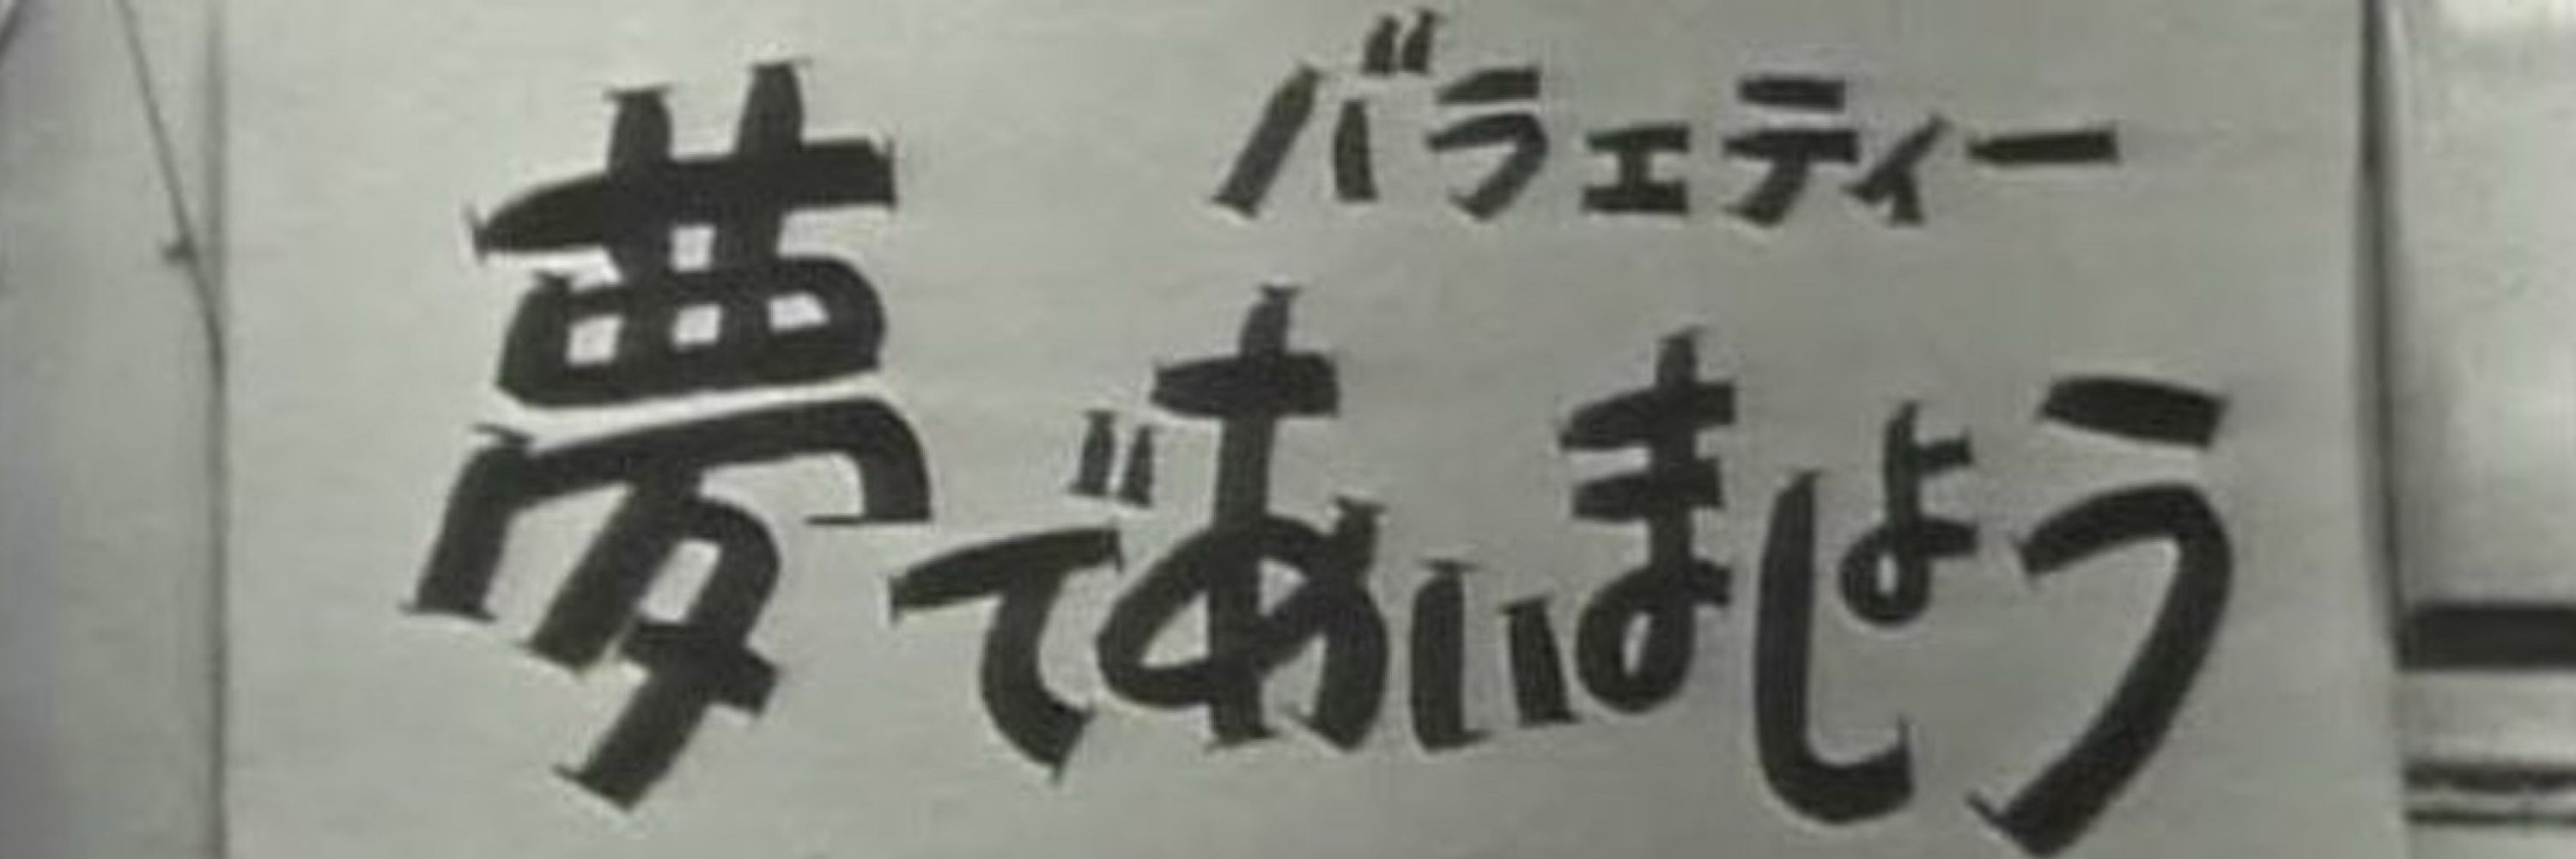 バラエティー
夢であいましょう